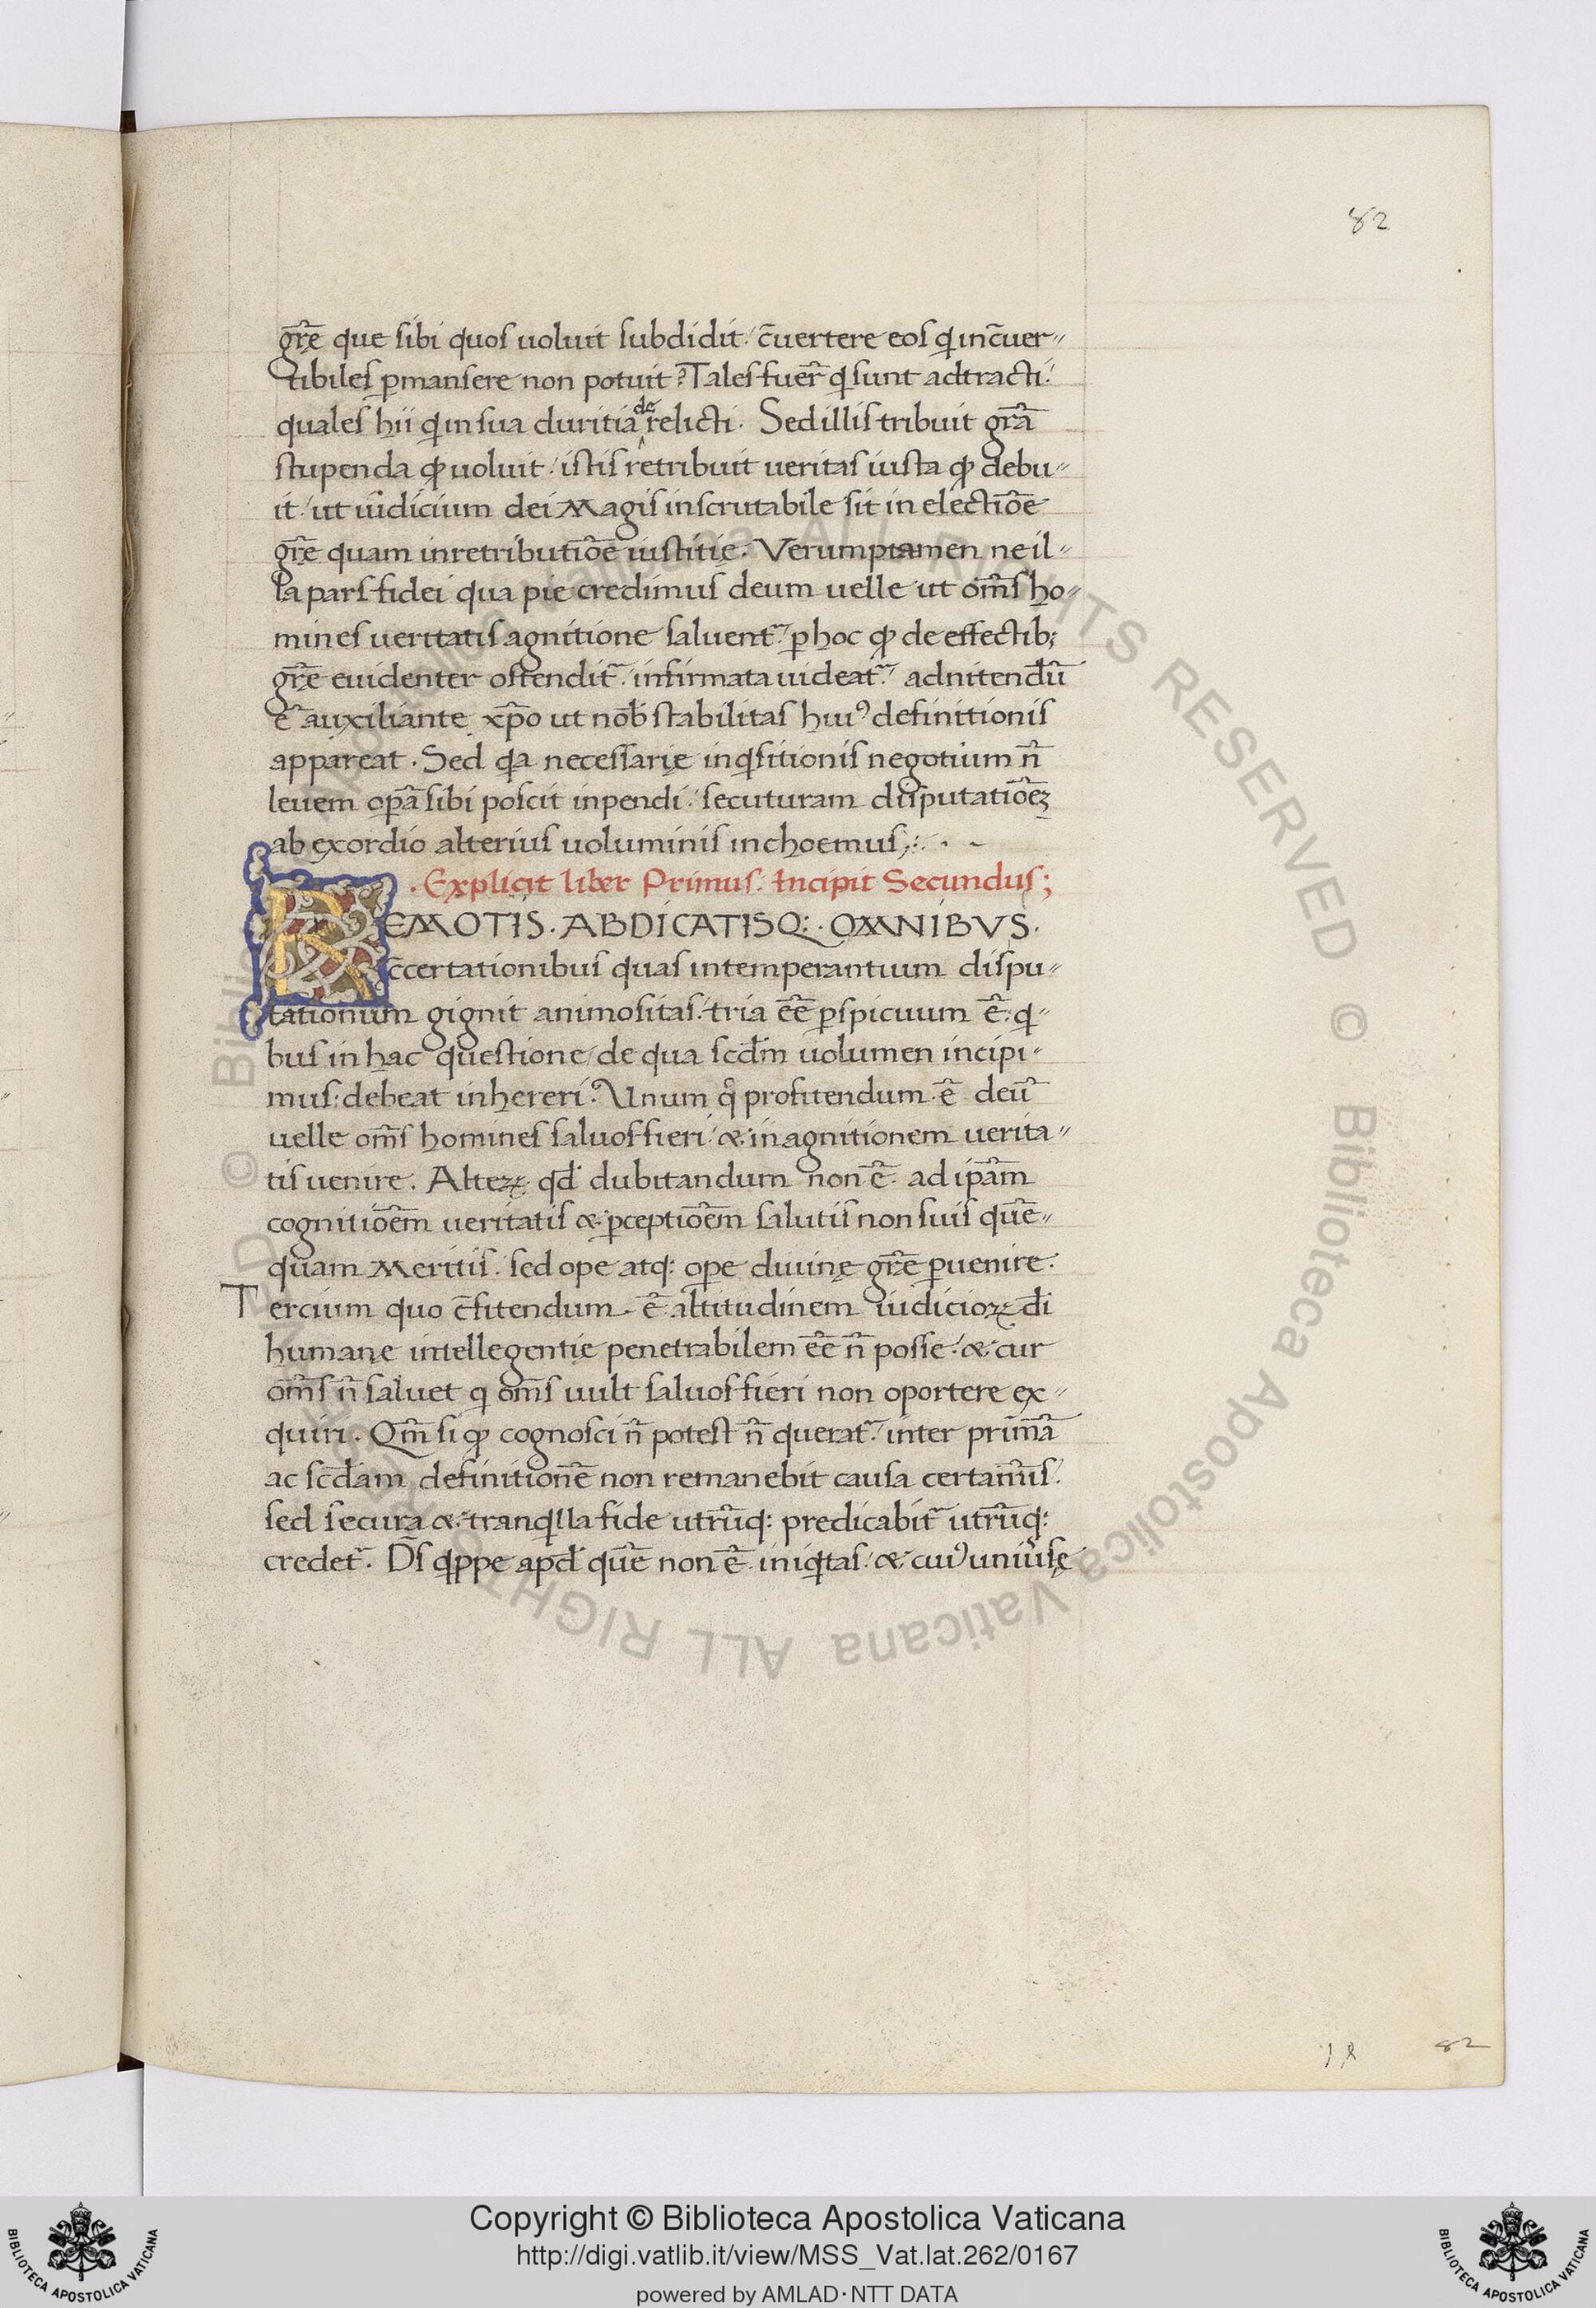 82
gr̄ę que sibi quos uoluit subdidit / c̄uertere eos qͥ inc̄uer〃
tibiles ꝑmansere non potuit? Tales fuer̄ qͥ sunt adtracti /
quales hii qͥ in sua duritia de relicti. Sed illis tribuit gr̄a
stupenda qͫ uoluit / istis retribuit ueritas iusta qͫ debu〃
it / ut iudicium dei magis inscrutabile sit in electiōe
gr̄ę quam in retributiōe iustitię. Verumptamen ne il〃
la pars fidei qua pie credimus deum uelle ut om̄s ho〃
mines ueritatis agnitione saluent᷑ ꝑ hoc qͫ de effectib;
gr̄ę euidenter ostendit᷑ / infirmata uideat᷑ / adnitendū
ē auxiliante xp̄o ut nob̄ stabilitas huiꝰ definitionis
appareat. Sed qͣa necessarię inqͥsitionis negotium n̄
leuem op̄ā sibi poscit inpendi / secuturam disputatiōeꝫ
ab exordio alterius uoluminis inchoemus;
. Explicit liber Primus. Incipit Secundus;
REMOTIS. ABDICATISQ:. OMNIBVS.
c̄certationibus quas intemperantium dispu〃
tationum gignit animositas / tria eē ꝑspicuum ē: qͥ〃
bus in hac questione / de qua scd̄m uolumen incipi〃
mus: debeat inhereri. Unum qͦ profitendum ē deū
uelle om̄s homines saluos fieri / & in agnitionem uerita〃
tis uenire. Alteꝝ qd̄ dubitandum non ē ad ip̄am
cognitiōem ueritatis & ꝑceptiōem salutis non suis quē〃
quam meritis / sed ope atq: oꝑe diuinę gr̄ę ꝑuenire.
Tercium quo c̄fitendum ē altitudinem iudicioꝝ d̄i
humanę intellegentię penetrabilem eē n̄ posse / & cur
om̄s n̄ saluet qͥ om̄s uult saluos fieri non oportere ex〃
quiri. Qm̄ si qͫ cognosci n̄ potest n̄ querat᷑ / inter primā
ac scd̄am definitionē non remanebit causa certam̄is /
sed secura & tranqͥlla fide utrūq: predicabit᷑ utrūq:
credet᷑. D̄s qͥppe apd̄ quē non ē iniqͥtas / & cuiꝰ uniu̓sę
82
Copyright © Biblioteca Apostolica Vaticana
http://digi.vatlib.it/view/MSS_Vat.lat.262/0167
powered by AMLAD·NTT DATA
BIBLIOTECA APOSTOLICA VATICANA
BIBLIOTECA APOSTOLICA VATICANA
© Biblioteca Apostolica Vaticana ALL RIGHTS RESERVED © Biblioteca Apostolica Vaticana ALL RIGHTS RESERVED